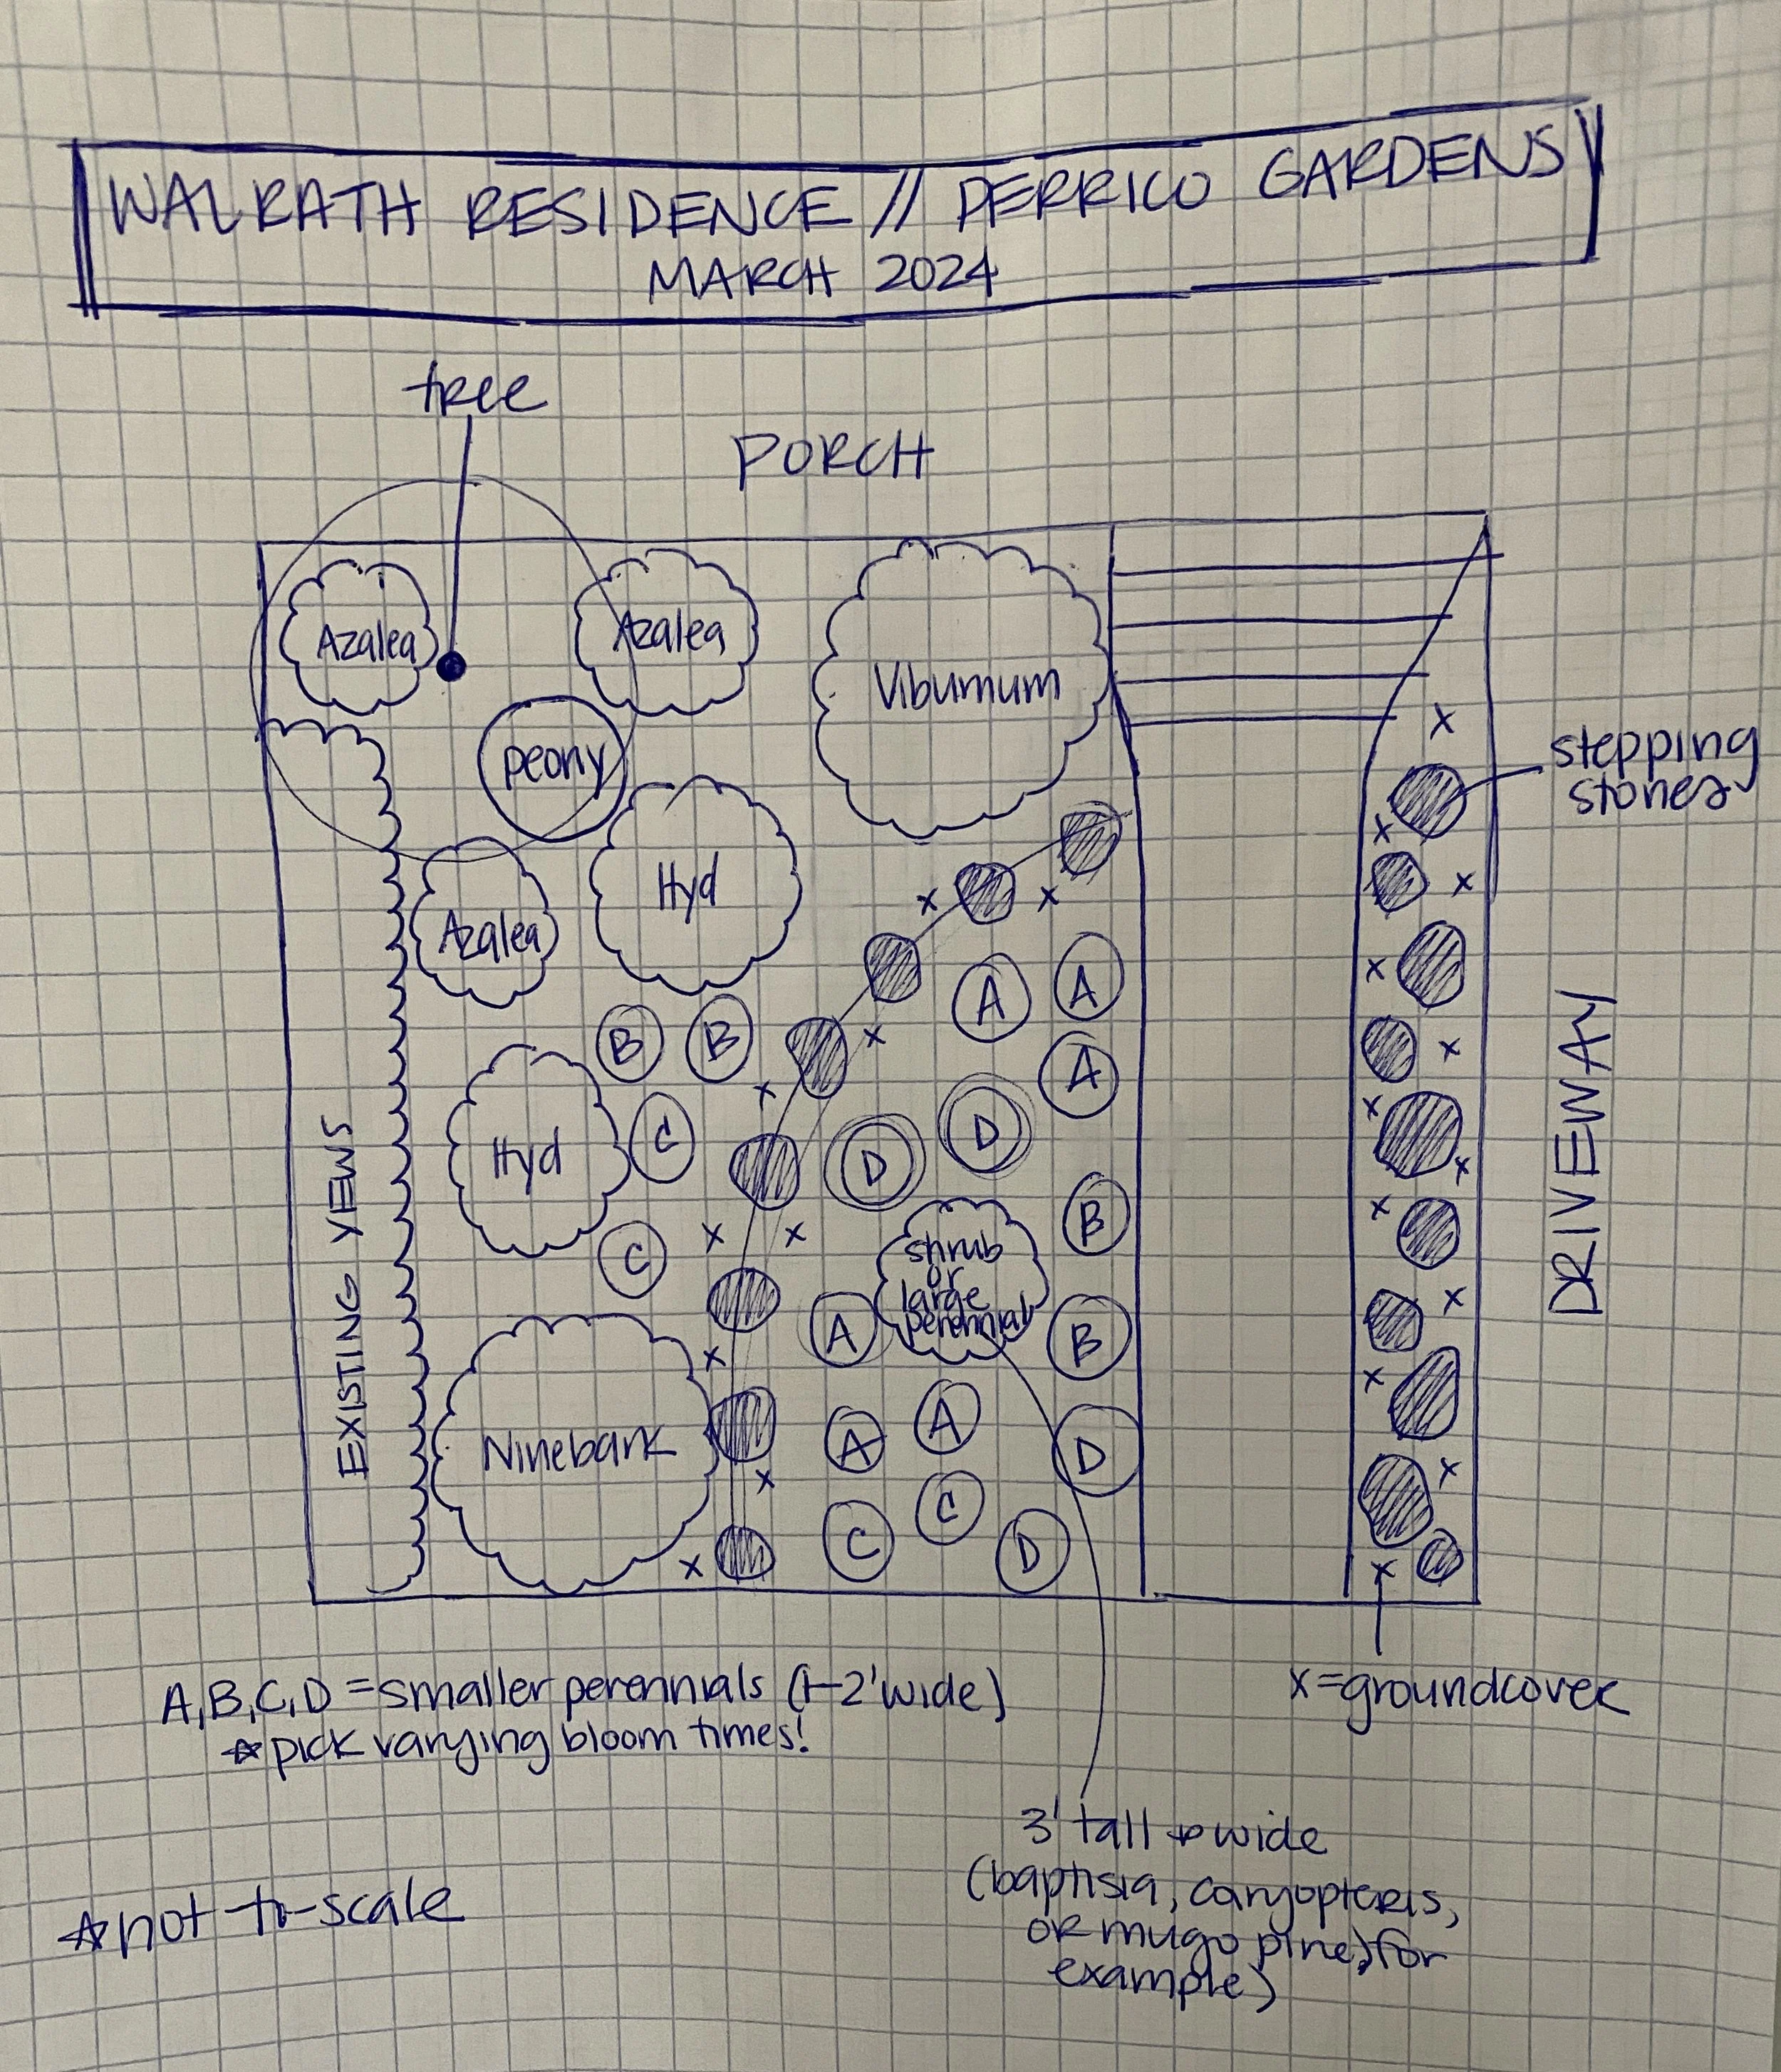 WALRATH RESIDENCE // PERRICO GARDENS
MARCH 2024
tree
PORCH
Azalea
Azalea
Viburnum
X
stepping
stones
peony
X
Hyd
X
X
X
Azalea
X
A
A
B
B
X
X
A
X
X
C
D
D
Hyd
X
X
B
X
X
C
shrub
or
large
perennial
X
A
B
X
X
EXISTING YEWS
DRIVEWAY
Ninebark
A
A
D
X
X
C
C
D
X
X
A, B, C, D = smaller perennials (1-2' wide)
☆ pick varying bloom times!
x = groundcover
3' tall & wide
(baptisia, caryopteris,
or mugo pine, for
example)
☆ not-to-scale